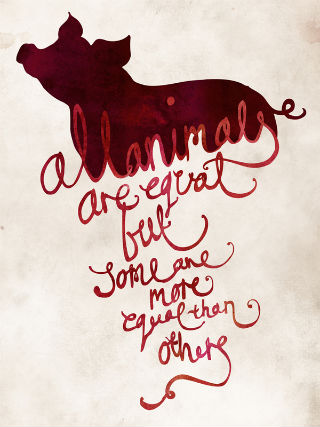 all animals
are equal
but
some are
more
equal than
others